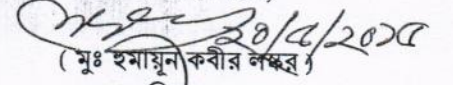 ২০/৫/২০১৫
( মুঃ হুমায়ূন কবীর লস্কর )